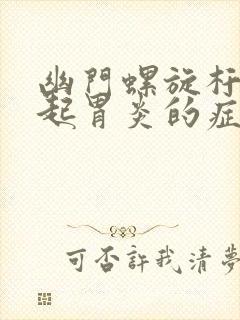 幽門螺旋杆
起胃炎的症
可否許我清夢